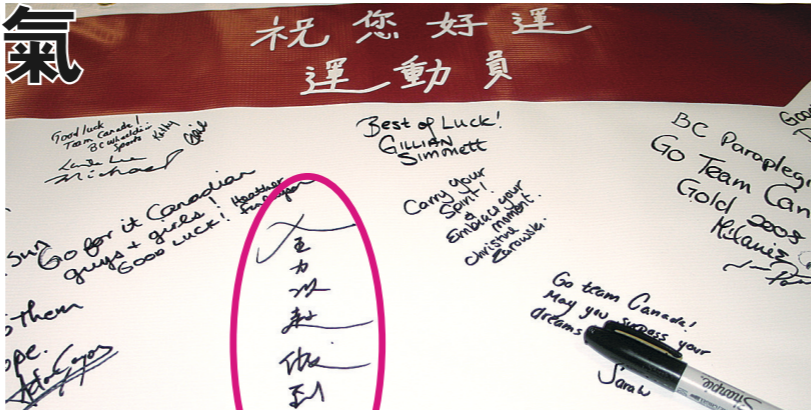 氣
祝您好運
運動員
Good luck
Team Canada!
BC Wheelchair
Sports
Kelly
Michael
Best of Luck!
GILLIAN
Simmett
BC Parapleg
Go Team Can
Gold 2005
Melanie
Sun
Go for it Canadian
guys + girls!
GOOD LUCK!
Heather
Carry your
Spirit!
&
Embrace your
moment.
Christine
Zarowski
力
以
做
到
Go team Canada!
May you surpass your
dreams
Sarah
them
ope.
Sharpie